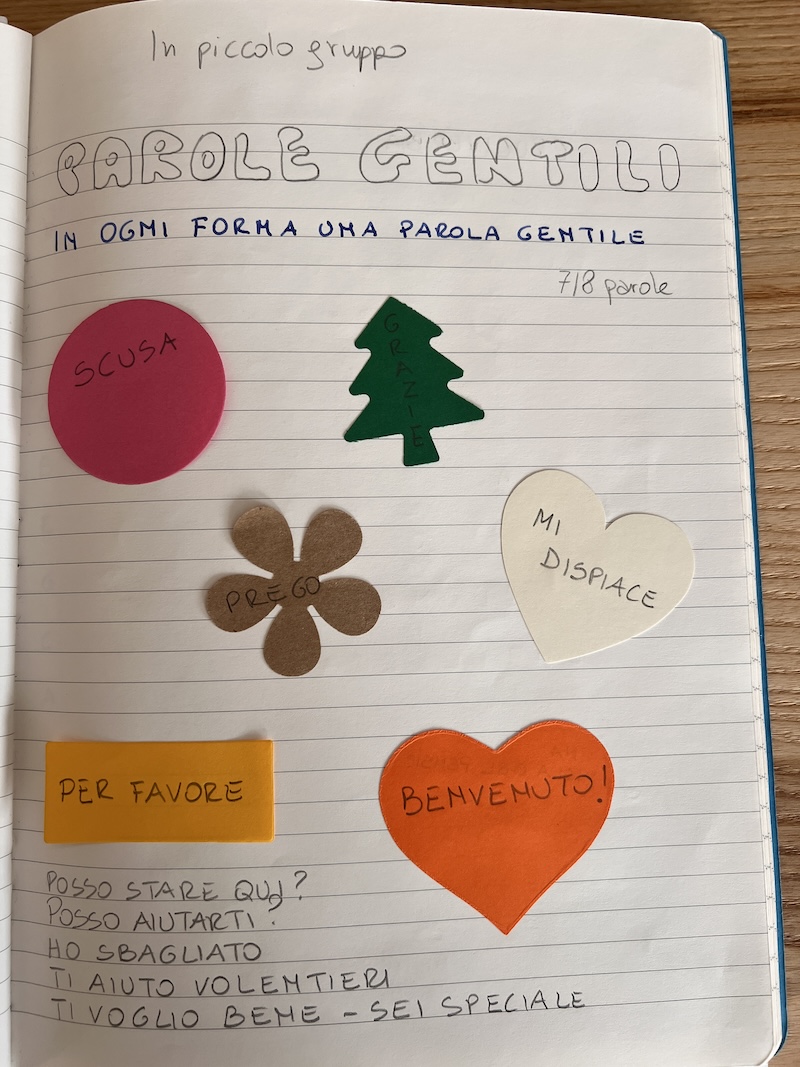 In piccolo gruppo
PAROLE GENTILI
IN OGNI FORMA UNA PAROLA GENTILE
7/8 parole
SCUSA
GRAZIE
PREGO
MI
DISPIACE
PER FAVORE
BENVENUTO!
POSSO STARE QUI?
POSSO AIUTARTI?
HO SBAGLIATO
TI AIUTO VOLENTIERI
TI VOGLIO BENE - SEI SPECIALE